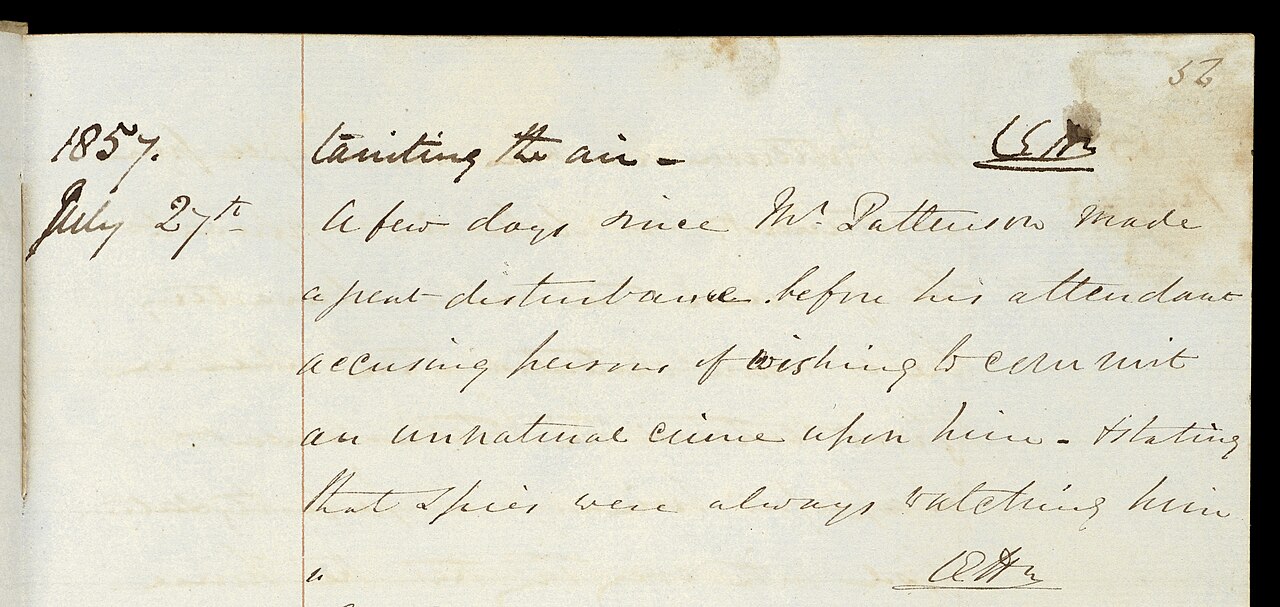 52
1857. tainting the air -
July 27th A few days since Mr Pattenson made
a great disturbance before his attendant
accusing persons of wishing to commit
an unnatural crime upon him - & stating
that spies were always watching him
"